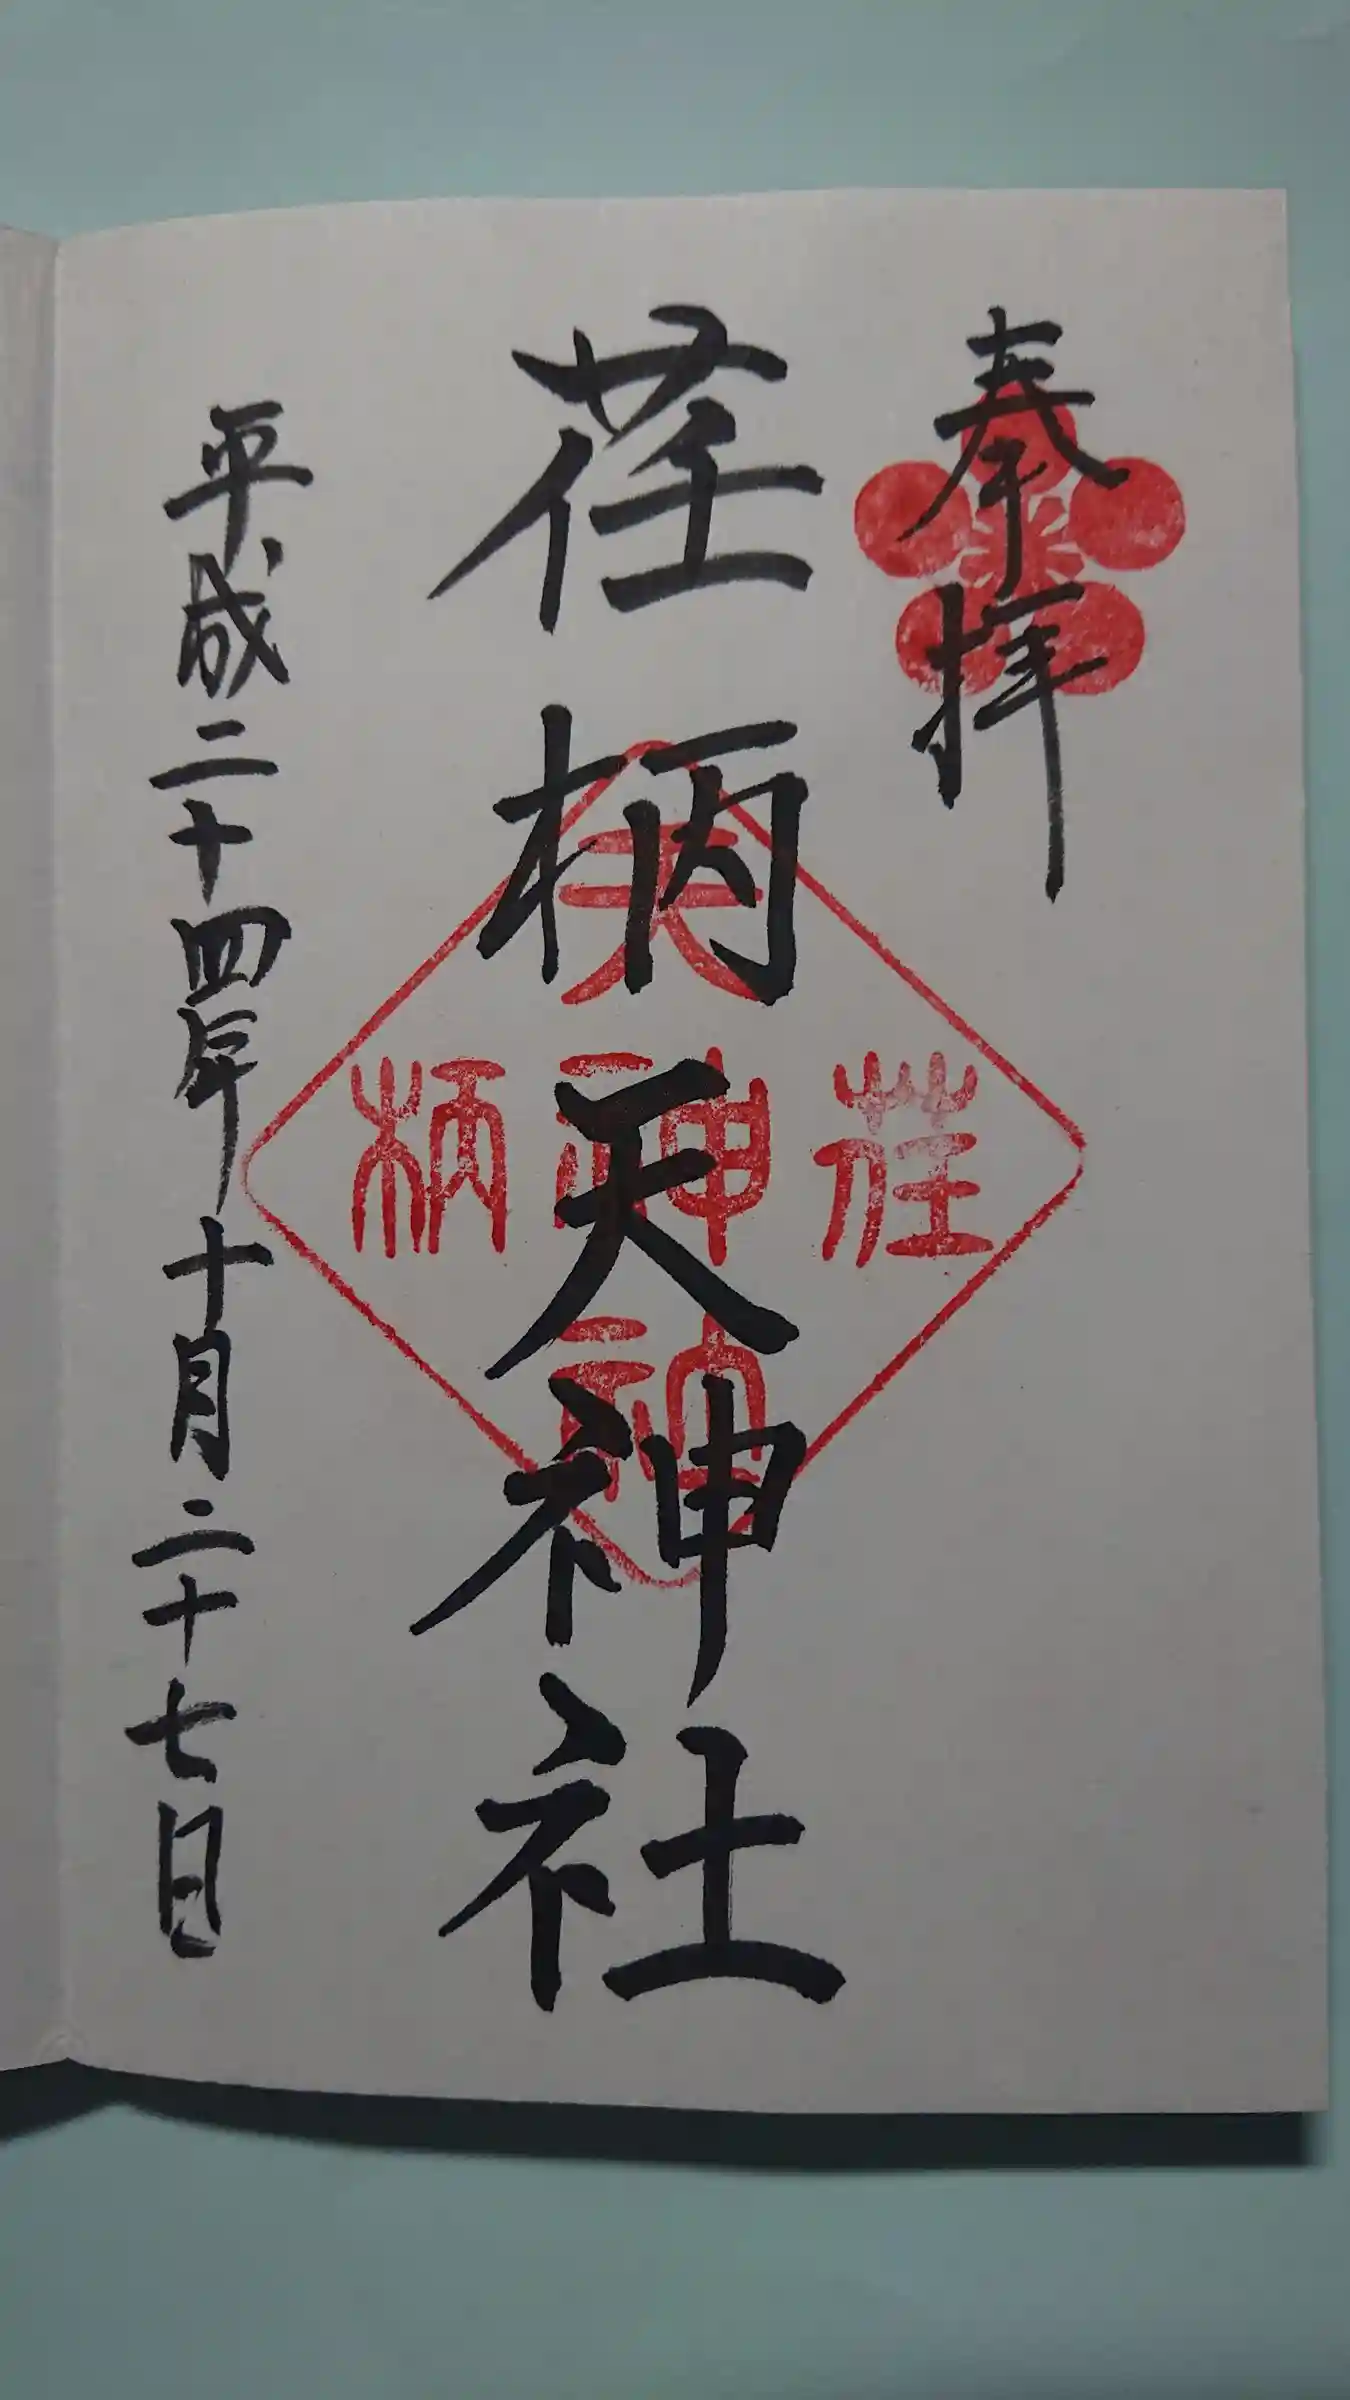 奉拝
荏柄天神社
平成二十四年十月二十七日
天
荏
神
柄
社